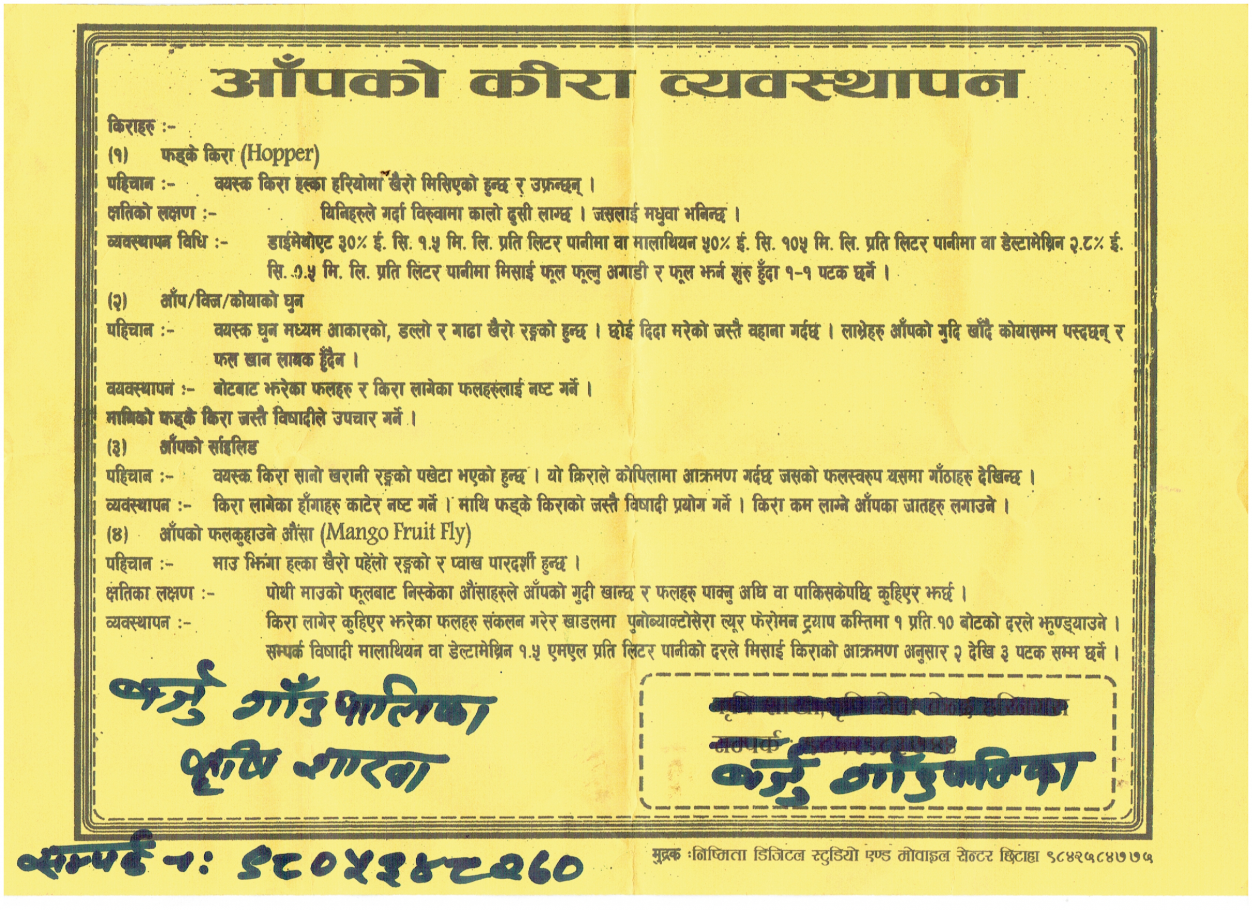 आँपको कीरा व्यवस्थापन
किराहरु :–
(१) फड्के किरा (Hopper)
पहिचान :– वयस्क किरा हल्का हरियोमा खैरो मिसिएको हुन्छ र उफ्रन्छन् ।
क्षतिको लक्षण :– यिनिहरुले गर्दा विरुवामा कालो ढुसी लाग्छ । जसलाई मधुवा भनिन्छ ।
व्यवस्थापन विधि :– डाईमेथोएट ३०% ई. सि. १.५ मि. लि. प्रति लिटर पानीमा वा मालाथियन ५०% ई. सि. १०५ मि. लि. प्रति लिटर पानीमा वा डेल्टामेथ्रिन २.८% ई.
सि. ०.५ मि. लि. प्रति लिटर पानीमा मिसाई फूल फूल्नु अगाडी र फूल झर्न शुरु हुँदा १–१ पटक छर्ने ।
(२) आँप/विज/कोयाको घुन
पहिचान :– वयस्क घुन मध्यम आकारको, डल्लो र गाढा खैरो रङ्गको हुन्छ । छोई दिदा मरेको जस्तै वहाना गर्दछ । लाभ्रेहरु आँपको गुदि खाँदै कोयासम्म पस्दछन् र
फल खान लायक हुँदैन ।
वयवस्थापन :– बोटबाट झरेका फलहरु र किरा लागेका फलहरुलाई नष्ट गर्ने ।
माथिको फड्के किरा जस्तै विषादीले उपचार गर्ने ।
(३) आँपको साईलिड
पहिचान :– वयस्क किरा सानो खरानी रङ्गको पखेटा भएको हुन्छ । यो किराले कोपिलामा आक्रमण गर्दछ जसको फलस्वरुप यसमा गाँठाहरु देखिन्छ ।
व्यवस्थापन :– किरा लागेका हाँगाहरु काटेर नष्ट गर्ने । माथि फड्के किराको जस्तै विषादी प्रयोग गर्ने । किरा कम लाग्ने आँपका जातहरु लगाउने ।
(४) आँपको फलकुहाउने औंसा (Mango Fruit Fly)
पहिचान :– माउ झिंगा हल्का खैरो पहेंलो रङ्गको र प्वाख पारदर्शी हुन्छ ।
क्षतिका लक्षण :– पोथी माउको फूलबाट निस्केका औंसाहरुले आँपको गुदी खान्छ र फलहरु पाक्नु अघि वा पाकिसकेपछि कुहिएर झर्छ ।
व्यवस्थापन :– किरा लागेर कुहिएर झरेका फलहरु संकलन गरेर खाडलमा पुनोब्याक्टोसेरा ल्यूर फेरोमन ट्रयाप कम्तिमा १ प्रति १० बोटको दरले झुण्ड्याउने ।
सम्पर्क विषादी मालाथियन वा डेल्टामेथ्रिन १.५ एमएल प्रति लिटर पानीको दरले मिसाई किराको आक्रमण अनुसार २ देखि ३ पटक सम्म छर्ने ।
बर्जु गाँउपालिका
कृषि शाखा
सम्पर्क
बर्जु गाँउपालिका
सम्पर्क न: ९८०५३४८२६०
मुद्रक :निष्मिता डिजिटल स्टुडियो एण्ड मोवाइल सेन्टर छिटाहा ९८४२५८४७७५